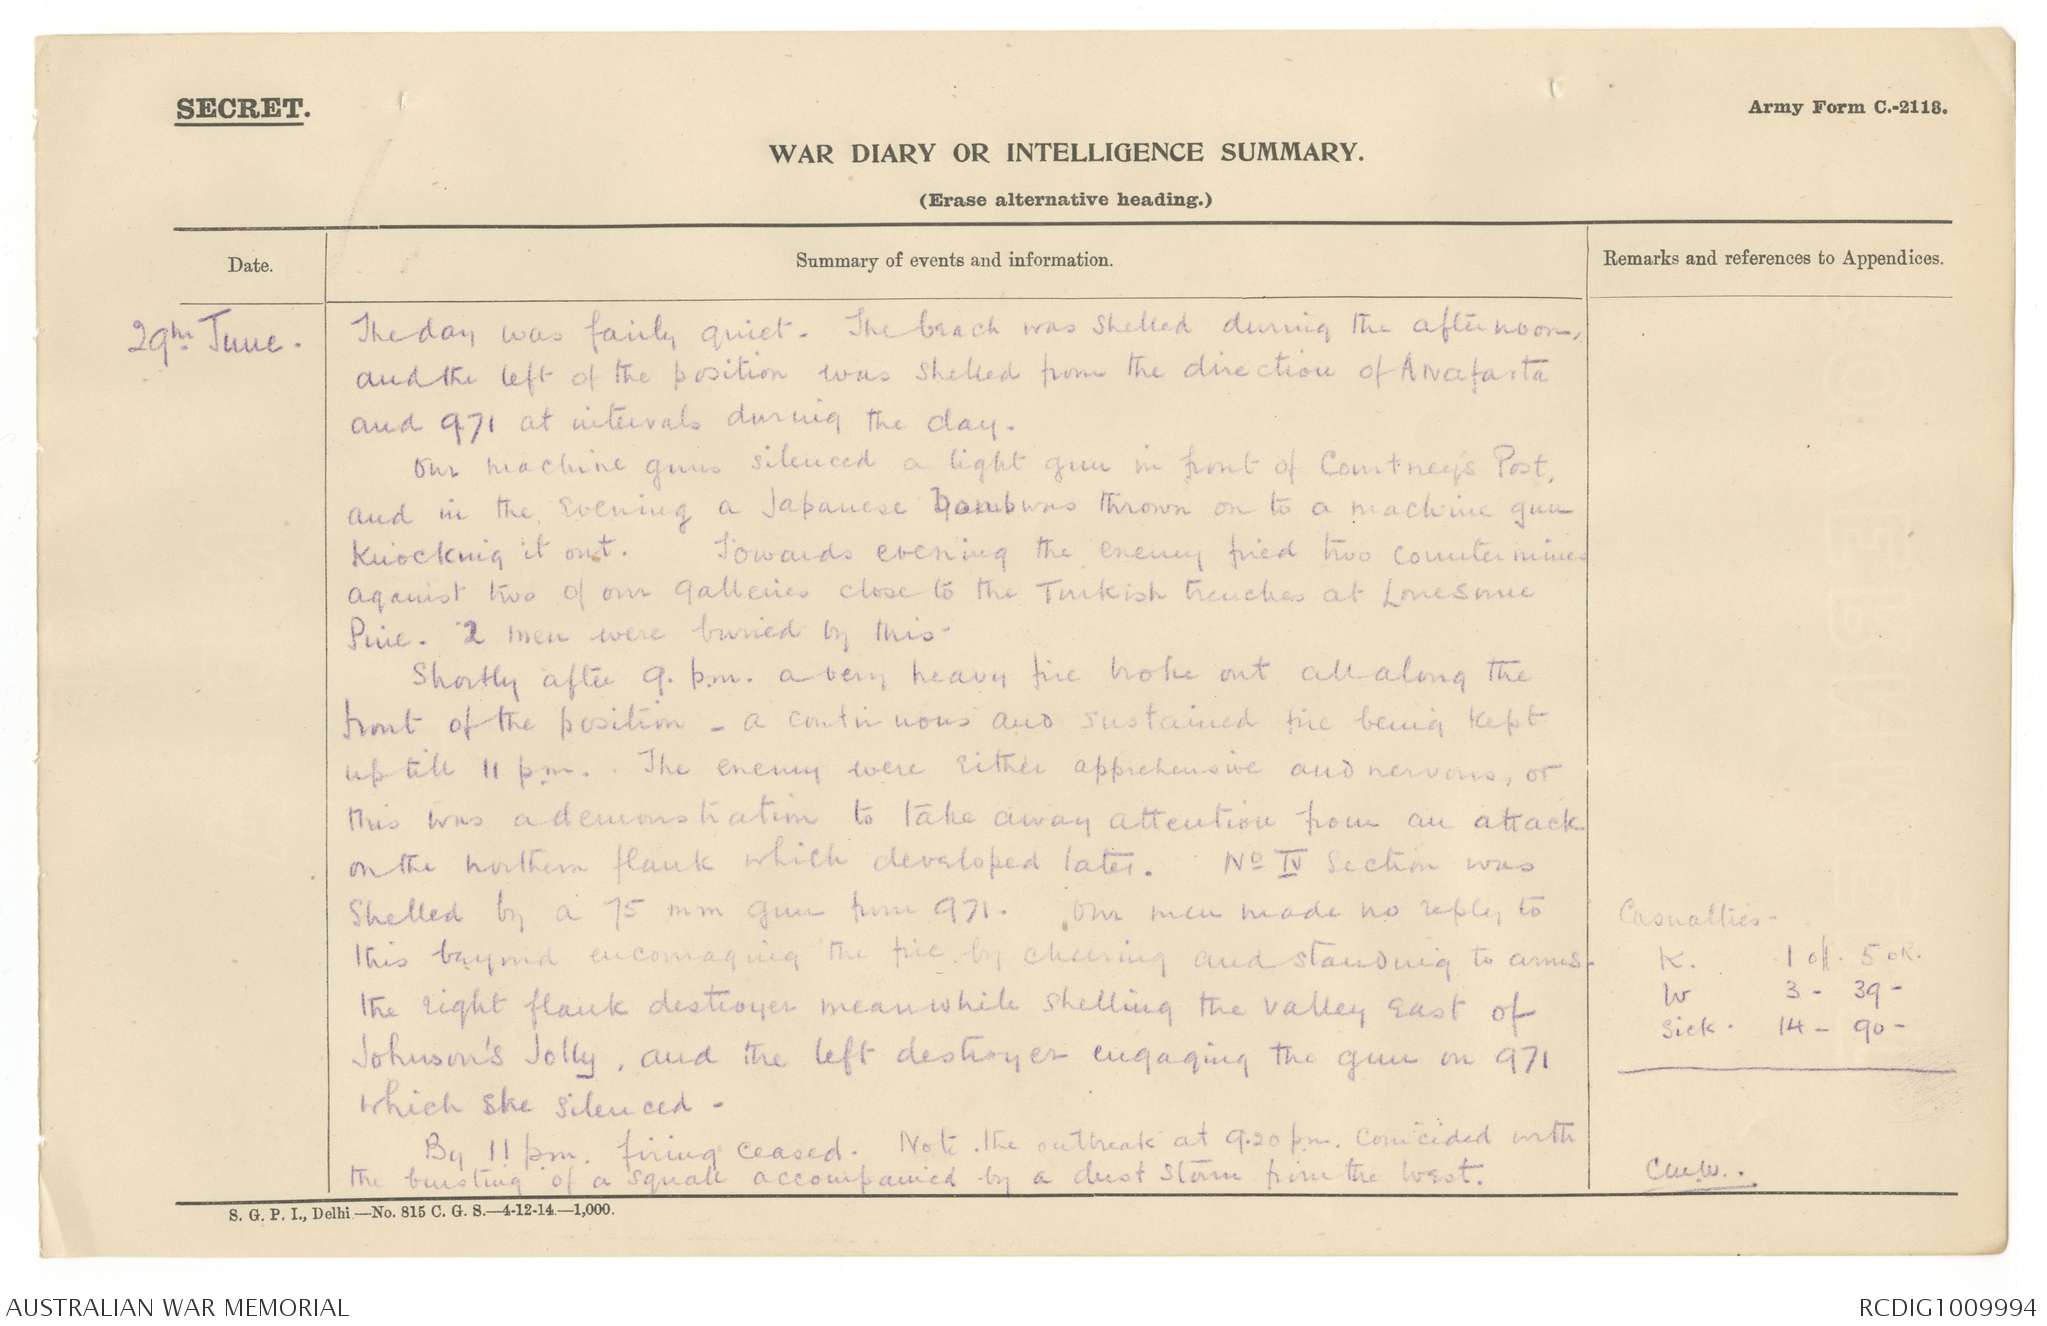 SECRET.
Army Form C.-2118.
WAR DIARY OR INTELLIGENCE SUMMARY.
(Erase alternative heading.)
Date.
Summary of events and information.
Remarks and references to Appendices.
29th June.
The day was fairly quiet. The beach was shelled during the afternoon,
and the left of the position was shelled from the direction of ANafarta
and 971 at intervals during the day.
Our machine guns silenced a light gun in front of Courtney's Post,
and in the evening a Japanese bomb was thrown on to a machine gun
knocking it out. Towards evening the enemy fired two countermines
against two of our galleries close to the Turkish trenches at Lonesome
Pine. 2 men were buried by this.
Shortly after 9. p.m. a very heavy fire broke out all along the
front of the position - a continuous and sustained fire being kept
up till 11 p.m. The enemy were either apprehensive and nervous, or
this was a demonstration to take away attention from an attack
on the northern flank which developed later. No IV Section was
shelled by a 75 mm gun from 971. Our men made no reply to
this beyond encouraging the fire by cheering and standing to arms.
the right flank destroyer meanwhile shelling the valley East of
Johnson's Jolly, and the left destroyer engaging the gun on 971
which she silenced -
By 11 p.m. firing ceased. Note. the outbreak at 9.20 p.m. coincided with
the bursting of a squall accompanied by a dust storm from the West.
Casualties -
K. 1 off. 5 OR.
W 3 - 39 -
Sick. 14 - 90 -
S. G. P. I., Delhi.—No. 815 C. G. S.—4-12-14.—1,000.
AUSTRALIAN WAR MEMORIAL
RCDIG1009994